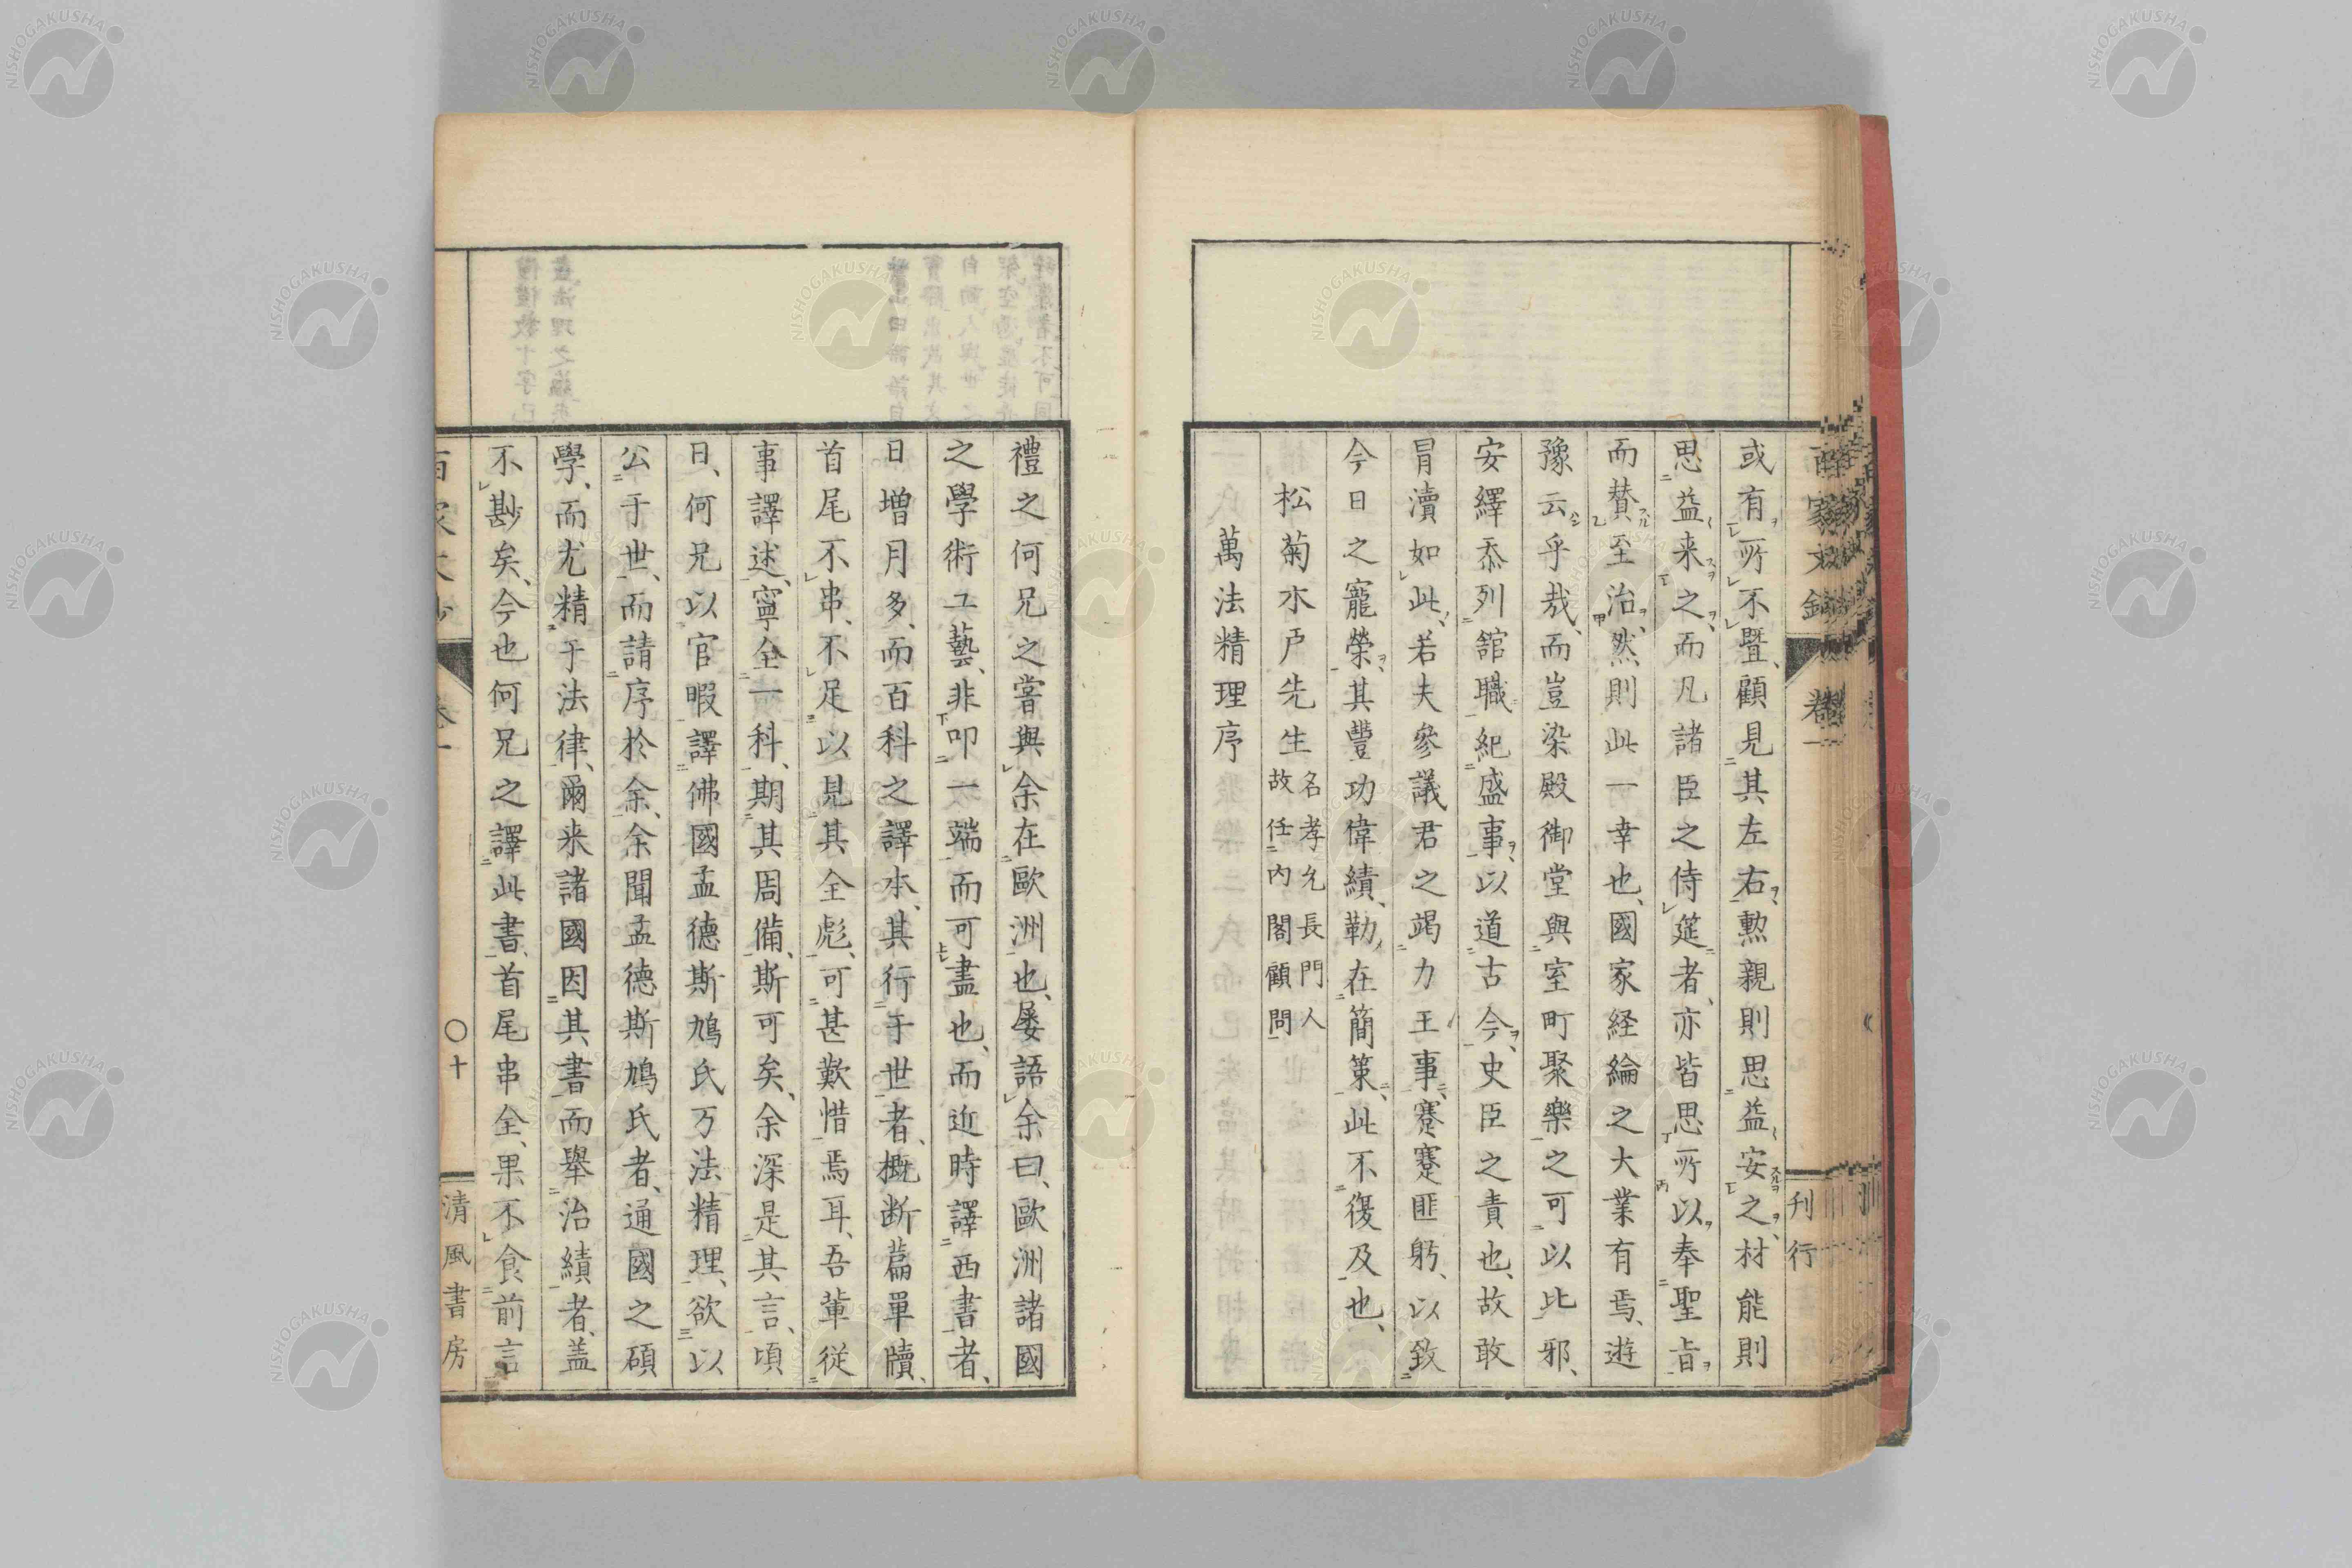 或有所不暨、顧見其左右、勲親則思益安之、材能則
思益来之、而凡諸臣之侍筵者、亦皆思所以奉聖旨
而賛至治、然則此一幸也、國家経綸之大業有焉、遊
豫云乎哉、而豈染殿御堂與室町聚樂之可以比邪、
安繹忝列舘職紀盛事、以道古今、史臣之責也、故敢
冒瀆如此、若夫參議君之竭力王事、蹇蹇匪躬、以致
今日之寵榮、其豐功偉績、勒在簡策、此不復及也、
松菊水戸先生
名孝允長門人
故任内閣顧問
萬法精理序
刊行
禮之何兄之嘗與余在歐洲也、屡語余曰、歐洲諸國
之學術工藝、非叩一端而可盡也、而近時譯西書者、
日増月多、而百科之譯本、其行于世者、概断篇單牘、
首尾不串、不足以見其全彪、可甚歎惜焉耳、吾輩従
事譯述、寧全一科、期其周備、斯可矣、余深是其言、頃
日、何兄以官暇譯佛國孟德斯鳩氏万法精理、欲以
公于世、而請序於余、余聞孟德斯鳩氏者、通國之碩
學、而尤精于法律、爾来諸國因其書而舉治績者、蓋
不尠矣、今也何兄之譯此書、首尾串全、果不食前言
〇十
清風書房